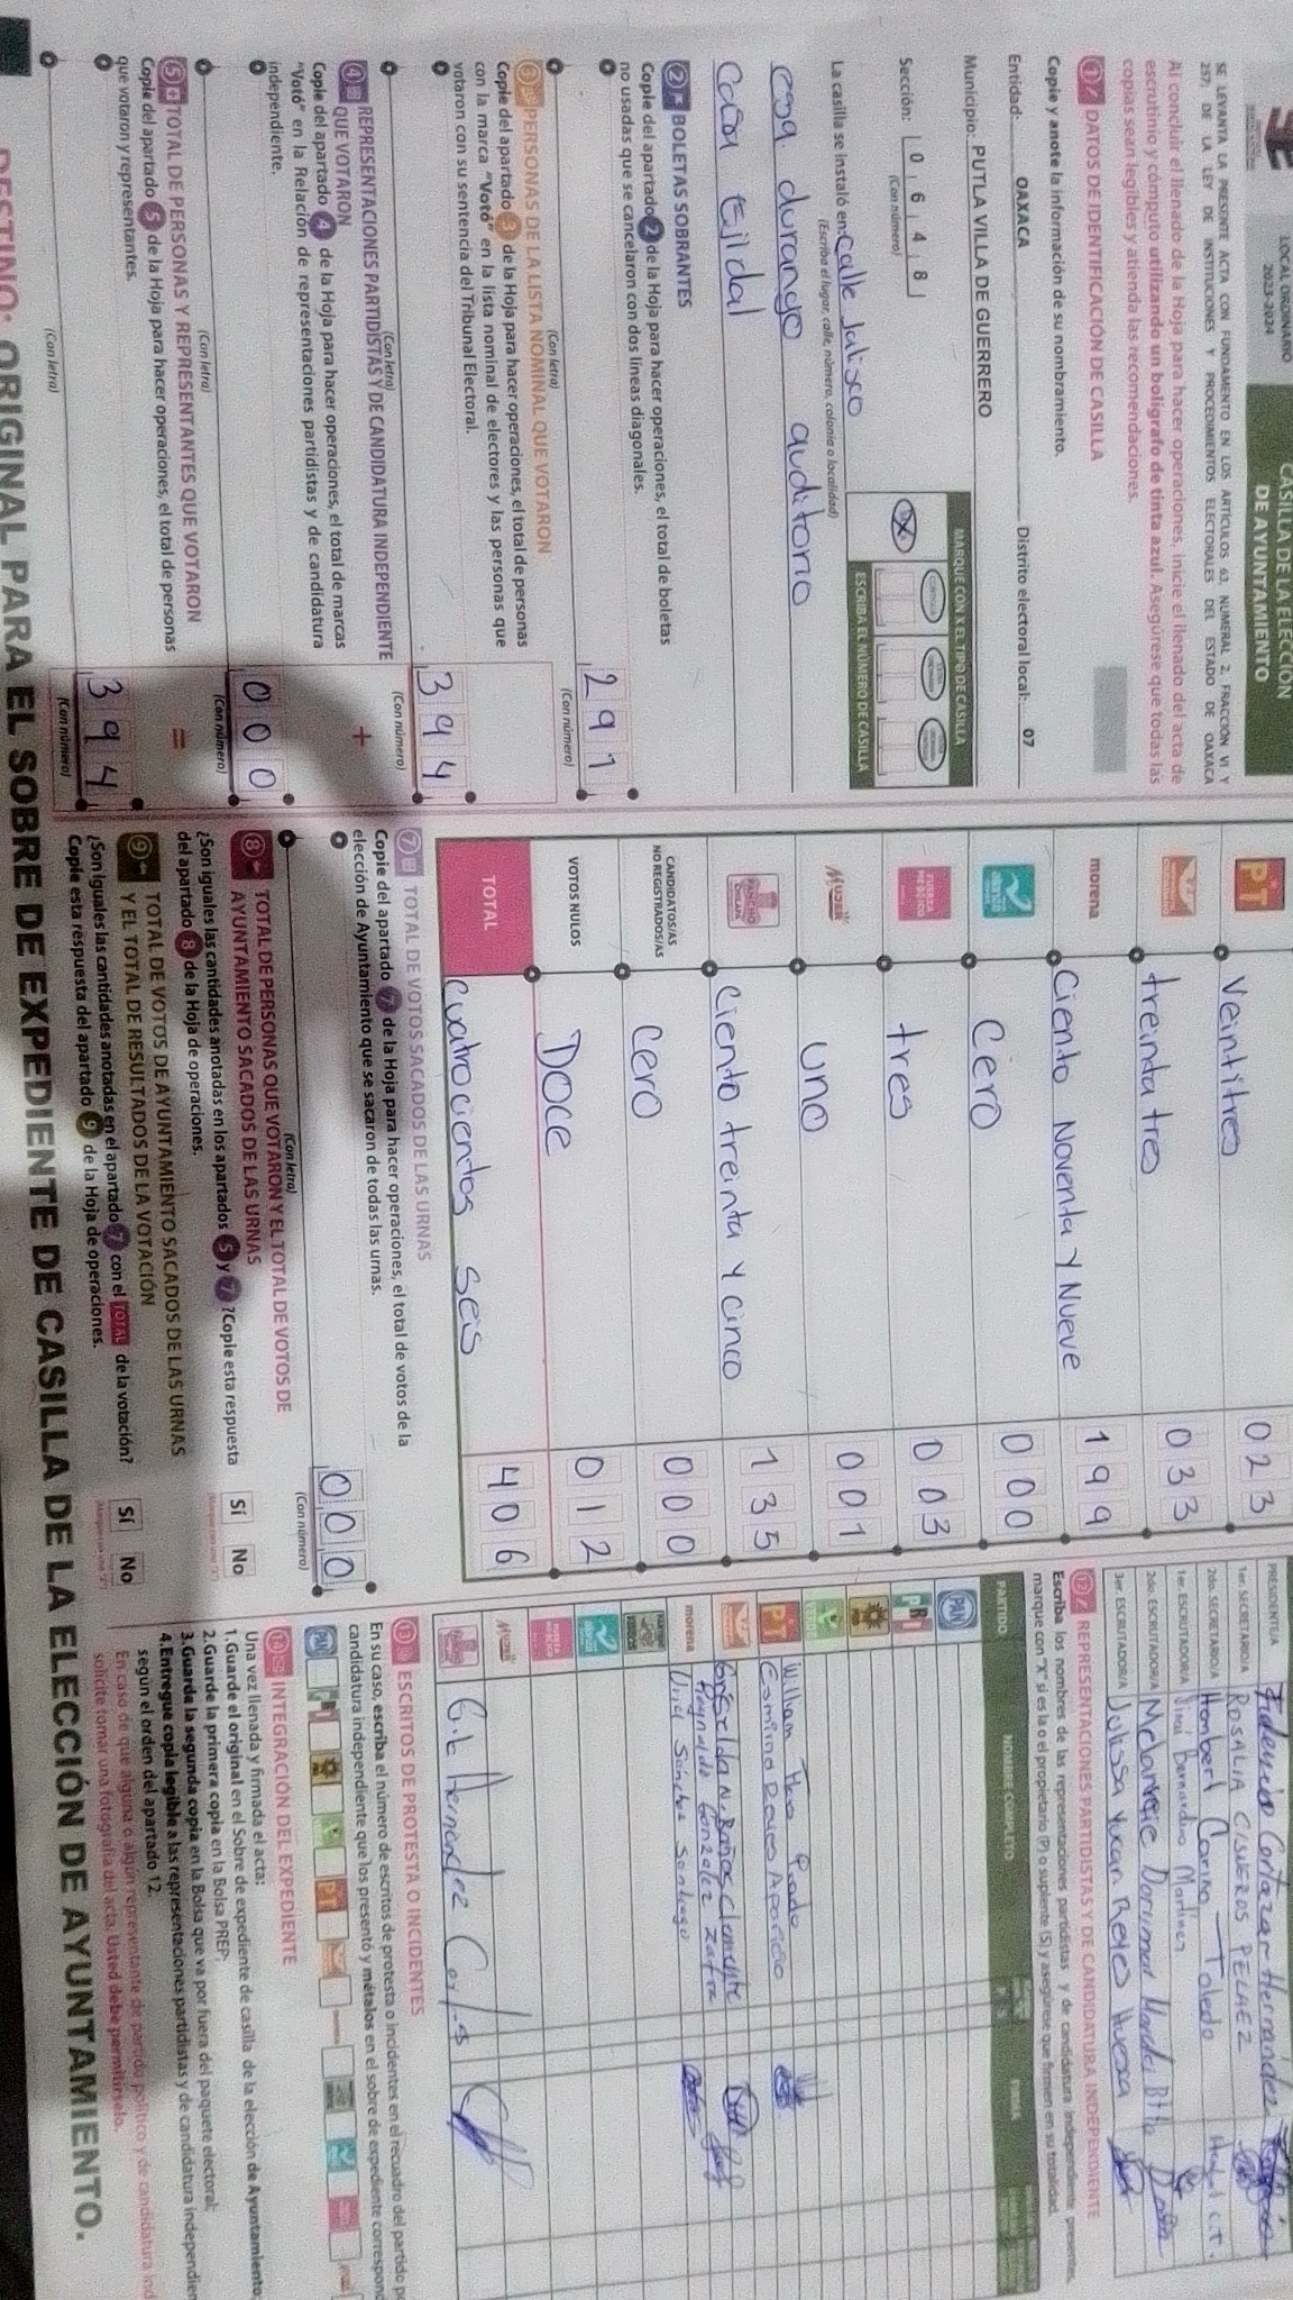 LOCAL ORDINARIO
2023-2024
CASILLA DE LA ELECCIÓN
DE AYUNTAMIENTO
SE LEVANTA LA PRESENTE ACTA CON FUNDAMENTO EN LOS ARTÍCULOS 63, NUMERAL 2, FRACCIÓN VI Y
257; DE LA LEY DE INSTITUCIONES Y PROCEDIMIENTOS ELECTORALES DEL ESTADO DE OAXACA
Al concluir el llenado de la Hoja para hacer operaciones, inicie el llenado del acta de
escrutinio y cómputo utilizando un bolígrafo de tinta azul. Asegúrese que todas las
copias sean legibles y atienda las recomendaciones.
1 DATOS DE IDENTIFICACIÓN DE CASILLA
Copie y anote la información de su nombramiento.
Entidad: OAXACA Distrito electoral local: 07
Municipio: PUTLA VILLA DE GUERRERO
Sección: 0 6 4 8
(Con número)
MARQUE CON X EL TIPO DE CASILLA
ESCRIBA EL NÚMERO DE CASILLA
La casilla se instaló en: calle Jalisco
(Escriba el lugar, calle, número, colonia o localidad)
esq. durango auditorio
Casa Ejidal
2 BOLETAS SOBRANTES
Copie del apartado 2 de la Hoja para hacer operaciones, el total de boletas
no usadas que se cancelaron con dos líneas diagonales.
2 9 1
(Con letra) (Con número)
3 PERSONAS DE LA LISTA NOMINAL QUE VOTARON
Copie del apartado 3 de la Hoja para hacer operaciones, el total de personas
con la marca "Votó" en la lista nominal de electores y las personas que
votaron con su sentencia del Tribunal Electoral.
3 9 4
(Con letra) (Con número)
4 REPRESENTACIONES PARTIDISTAS Y DE CANDIDATURA INDEPENDIENTE
QUE VOTARON
+
Copie del apartado 4 de la Hoja para hacer operaciones, el total de marcas
"Votó" en la Relación de representaciones partidistas y de candidatura
independiente.
0 0 0
(Con letra) (Con número)
5 TOTAL DE PERSONAS Y REPRESENTANTES QUE VOTARON
=
Copie del apartado 5 de la Hoja para hacer operaciones, el total de personas
que votaron y representantes.
3 9 4
(Con letra) (Con número)
PT Veintitres 0 2 3
treinta tres 0 3 3
morena Ciento Noventa y Nueve 1 9 9
alianza Cero 0 0 0
FUERZA MÉXICO tres 0 0 3
MUJER uno 0 0 1
PANCHO Ciento treinta y cinco 1 3 5
CANDIDATOS/AS
NO REGISTRADOS/AS Cero 0 0 0
VOTOS NULOS DOCE 0 1 2
TOTAL Cuatrocientos seis 4 0 6
7 TOTAL DE VOTOS SACADOS DE LAS URNAS
Copie del apartado 7 de la Hoja para hacer operaciones, el total de votos de la
elección de Ayuntamiento que se sacaron de todas las urnas.
0 0 0
(Con letra) (Con número)
8 TOTAL DE PERSONAS QUE VOTARON Y EL TOTAL DE VOTOS DE
AYUNTAMIENTO SACADOS DE LAS URNAS
¿Son iguales las cantidades anotadas en los apartados 5 y 7 ? Copie esta respuesta
del apartado 8 de la Hoja de operaciones.
Sí No
9 TOTAL DE VOTOS DE AYUNTAMIENTO SACADOS DE LAS URNAS
Y EL TOTAL DE RESULTADOS DE LA VOTACIÓN
¿Son iguales las cantidades anotadas en el apartado 7 con el TOTAL de la votación?
Copie esta respuesta del apartado 9 de la Hoja de operaciones.
Sí No
PRESIDENTE/A Fidencio Cortazar Hernández
1er. SECRETARIO/A ROSALIA CISNEROS PELAEZ
2do. SECRETARIO/A Humbert Cariño Toledo
1er. ESCRUTADOR/A Bernardino Martinez
2do. ESCRUTADOR/A
3er. ESCRUTADOR/A Julissa Reyes
12 REPRESENTACIONES PARTIDISTAS Y DE CANDIDATURA INDEPENDIENTE
Escriba los nombres de las representaciones partidistas y de candidatura independiente presentes,
marque con "X" si es la o el propietario (P) o suplente (S) y asegúrese que firmen en su totalidad.
PARTIDO NOMBRE COMPLETO P S FIRMA
PAN
PRI
William Prado
PT
Griselda N. Baños Clemente
Reynaldo González Zafra
morena Sánchez Santiago
MUJER
Gil Hernandez
13 ESCRITOS DE PROTESTA O INCIDENTES
En su caso, escriba el número de escritos de protesta o incidentes en el recuadro del partido
candidatura independiente que los presentó y métalos en el sobre de expediente
PAN PRI PT
14 INTEGRACIÓN DEL EXPEDIENTE
Una vez llenada y firmada el acta:
1.Guarde el original en el Sobre de expediente de casilla de la elección de Ayuntamiento
2.Guarde la primera copia en la Bolsa PREP;
3.Guarde la segunda copia en la Bolsa que va por fuera del paquete electoral;
4.Entregue copia legible a las representaciones partidistas y de candidatura
según el orden del apartado 12.
En caso de que alguna o algún representante de partido político y de candidatura
solicite tomar una fotografía del acta, Usted debe permitírselo.
DESTINO: ORIGINAL PARA EL SOBRE DE EXPEDIENTE DE CASILLA DE LA ELECCIÓN DE AYUNTAMIENTO.